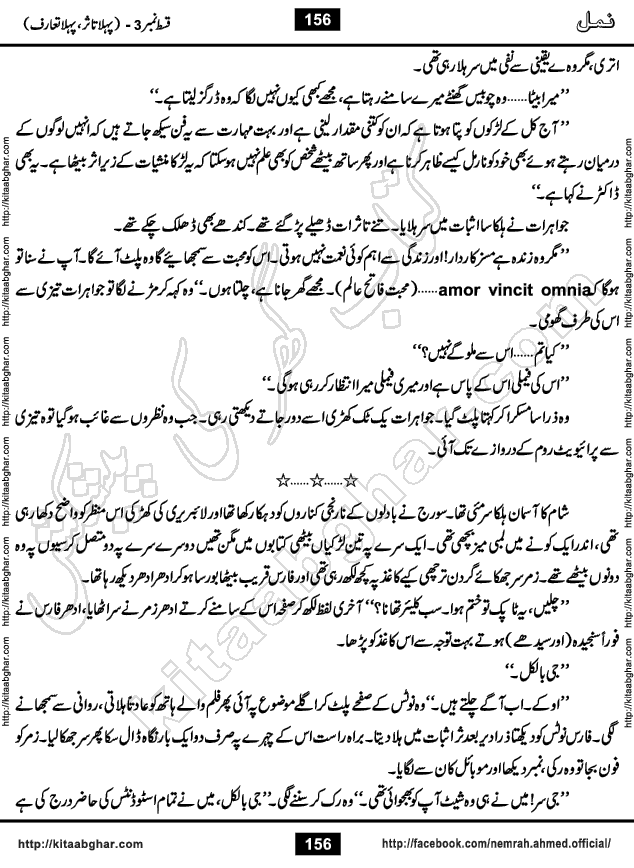 نمل 156 قسط نمبر 3 - (پہلا تاثر، پہلا تعارف)
اتری، مگر وہ بے یقینی سے نفی میں سر ہلا رہی تھی۔
’’میرا بیٹا......وہ چوبیس گھنٹے میرے سامنے رہتا ہے، مجھے کبھی کیوں نہیں لگا کہ وہ ڈرگز لیتا ہے۔‘‘
’’آج کل کے لڑکوں کو پتا ہوتا ہے کہ ان کو کتنی مقدار لینی ہے اور بہت مہارت سے یہ فن سیکھ جاتے ہیں کہ انہیں لوگوں کے
درمیان رہتے ہوئے بھی خود کو نارمل کیسے ظاہر کرنا ہے اور پھر ساتھ بیٹھے شخص کو بھی علم نہیں ہو سکتا کہ یہ لڑکا منشیات کے زیر اثر بیٹھا ہے۔ یہ بھی
ڈاکٹر نے کہا ہے۔‘‘
جواہرات نے ہلکا سا اثبات میں سر ہلایا۔ تنے تاثرات ڈھیلے پڑ گئے تھے۔ کندھے بھی ڈھلک چکے تھے۔
’’مگر وہ زندہ ہے مسز کاردار! اور زندگی سے اہم کوئی نعمت نہیں ہوتی۔ اس کو محبت سے سمجھائیے گا وہ پلٹ آئے گا۔ آپ نے سنا تو
ہو گا کہ amor vincit omnia......(محبت فاتح عالم)۔ مجھے گھر جانا ہے، چلتا ہوں۔‘‘ وہ کہہ کر مڑنے لگا تو جواہرات تیزی سے
اس کی طرف گھومی۔
’’کیا تم......اس سے ملو گے نہیں؟‘‘
’’اس کی فیملی اس کے پاس ہے اور میری فیملی میرا انتظار کر رہی ہو گی۔‘‘
وہ ذرا سا مسکرا کر کہتا پلٹ گیا۔ جواہرات یک ٹک کھڑی اسے دور جاتے دیکھتی رہی۔ جب وہ نظروں سے غائب ہو گیا تو وہ تیزی
سے پرائیویٹ روم کے دروازے تک آئی۔
☆......☆......☆
شام کا آسمان ہلکا سرمئی تھا۔ سورج نے بادلوں کے نارنجی کناروں کو دہکا رکھا تھا اور لائبریری کی کھڑکی اس منظر کو واضح دکھا رہی
تھی، اندر ایک کونے میں لمبی میز بچھی تھی۔ ایک سرے پہ تین لڑکیاں بیٹھی کتابوں میں مگن تھیں دوسرے سرے پہ دو متصل کرسیوں پہ وہ
دونوں بیٹھے تھے۔ زمر سر جھکائے گردن ترچھی کیے کاغذ پہ کچھ لکھ رہی تھی اور فارس قریب بیٹھا بور سا ہو کر ادھر ادھر دیکھ رہا تھا۔
’’چلیں، یہ ٹاپک تو ختم ہوا۔ سب کلیئر تھا نا؟‘‘ آخری لفظ لکھ کر صفحہ اس کے سامنے کرتے ادھر زمر نے سر اٹھایا، ادھر فارس نے
فوراً سنجیدہ (اور سیدھے) ہوتے بہت توجہ سے اس کاغذ کو پڑھا۔
’’جی بالکل۔‘‘
’’اوکے۔ اب آگے چلتے ہیں۔‘‘ وہ نوٹس کے صفحے پلٹ کر اگلے موضوع پہ آئی پھر قلم والے ہاتھ کو عادتاً ہلاتی، روانی سے سمجھانے
لگی۔ فارس نوٹس کو دیکھتا ذرا دیر بعد سر اثبات میں ہلا دیتا۔ براہ راست اس کے چہرے پہ صرف دو ایک بار نگاہ ڈال سکا پھر سر جھکا لیا۔ زمر کو
فون بجا تو وہ رکی، نمبر دیکھا اور موبائل کان سے لگایا۔
’’جی سر! میں نے ہی وہ شیٹ آپ کو بھجوائی تھی۔‘‘ وہ رک کر سننے لگی۔ ’’جی بالکل، میں نے تمام اسٹوڈنٹس کی حاضر درج کی ہے
http://kitaabghar.com 156 http://facebook.com/nemrah.ahmed.official/
http://kitaabghar.com http://kitaabghar.com http://kitaabghar.com http://kitaabghar.com http://kitaabghar.com http://kitaabghar.com
http://kitaabghar.com http://kitaabghar.com http://kitaabghar.com http://kitaabghar.com http://kitaabghar.com http://kitaabghar.com
کتاب گھر کی پیشکش
kitaabghar.com